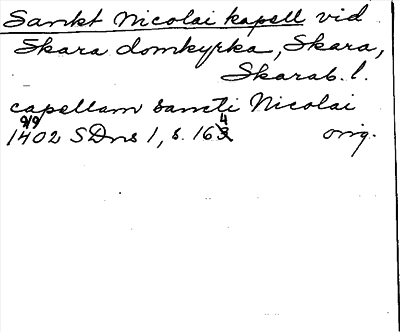 Sankt Nicolai kapell vid
Skara domkyrka, Skara,
Skarab. l.
capellam sancti Nicolai
9/9
1402 SDns 1, s. 164 orig.